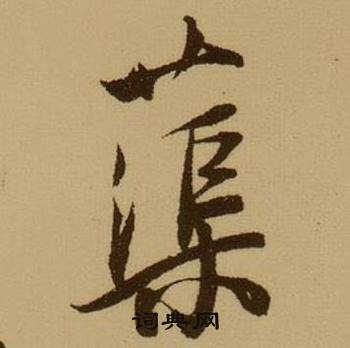 蕖
词典网